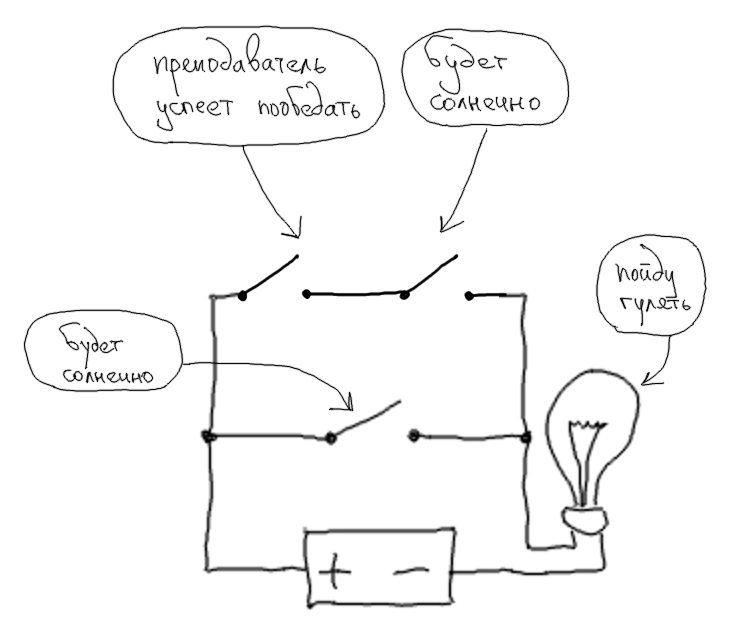 преподаватель
успеет пообедать
будет
солнечно
пойду
гулять
будет
солнечно
+ −